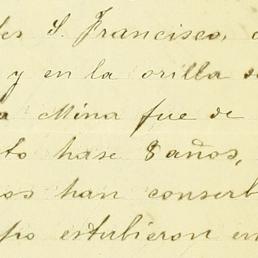 les S. Francisco,
y en la orilla
a Mina fue de
to hase 8 años,
os han conserb
po estubieron en